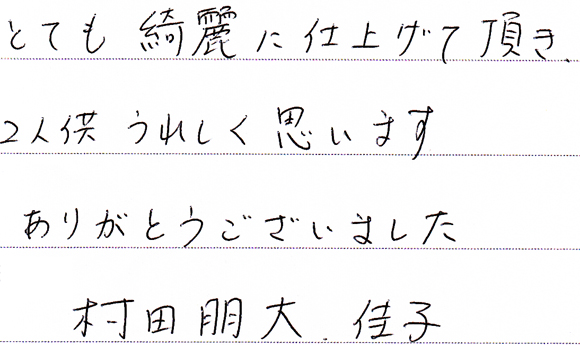 とても綺麗に仕上げて頂き、
2人供うれしく思います
ありがとうございました
村田朋大、佳子